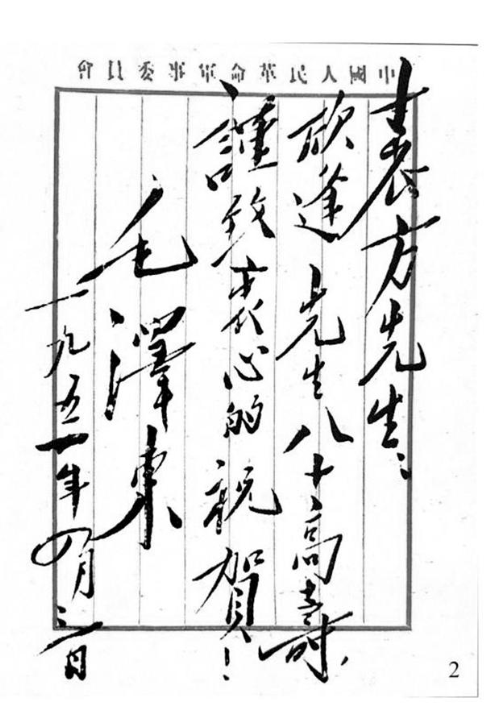 中國人民革命軍事委員會
表方先生：
欣逢先生八十高壽，
謹致衷心的祝賀！
毛澤東
一九五一年四月
2